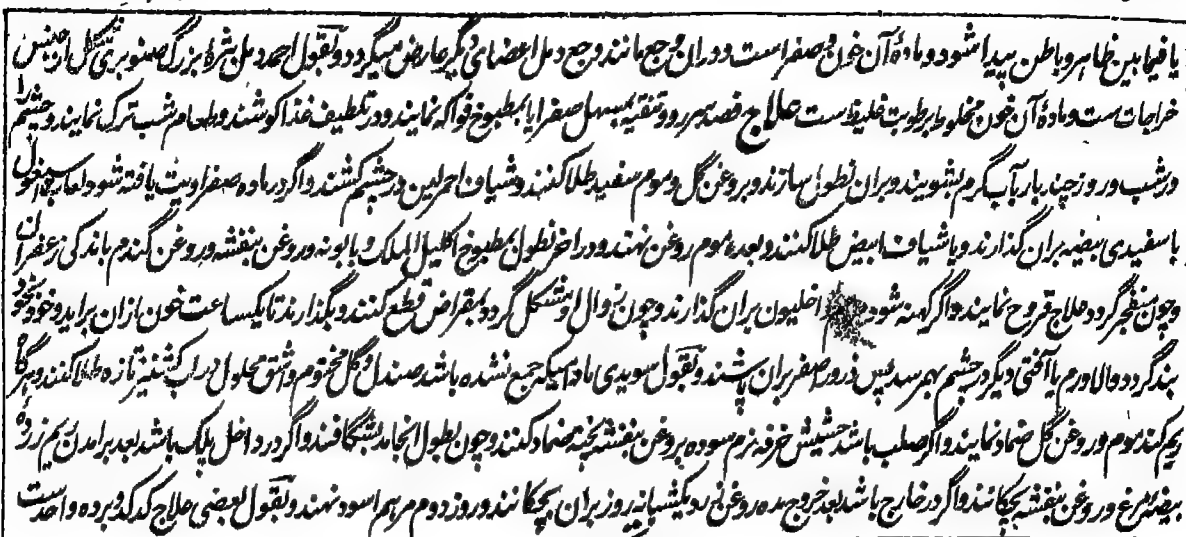 یا فیمابین ظاهر و باطن پیدا شود و مادهٔ آن خون و صفرا ست و دران وجع مانند وجع دمل اعضای دیگر عارض میگردد و بقول احمد دمل بثرهٔ بزرگ صنوبری شکل از جنس
خراجات ست و مادهٔ آن خون مخلوط برطوبت غلیظ ست علاج فصد سررو و تنقیه بمسهل صفرا یا بمطبوخ فواکه نمایند و در تلطیف غذا کوشند و طعام شب ترک نمایند و چشم را
در شب و روز چند بار بآب گرم بشویند و بران نطول سازند و بروغن گل و موم سفید طلا کنند و شیاف احمر لین در چشم کشند و اگر در ماده صفراویت یافته شود لعاب اسبغول
با سفیدی بیضه بران گذارند و یا شیاف ابیض طلا کنند و بعده موم روغن نهند و در آخر نطول بمطبوخ اکلیل الملک و بابونه و روغن بنفشه و روغن گندم باندکی زعفران
و چون منفجر گردد علاج قروح نمایند و اگر کهنه شود داخلیون بران گذارند و چون زوال او مشکل گردد بمقراض قطع کنند و بگذارند تا یکساعت خون ازان براید و خود بخود
بند گردد و الا ورم یا آفتی دیگر در چشم بهم رسد پس ذرور اصفر بران پاشند و بقول سویدی مادامیکه جمع نشده باشد صندل و گل مختوم و اشق محلول در آب کشنیز تازه طلا کنند و هرگاه
ریم کند موم و روغن گل ضماد نمایند و اگر صلب باشد حشیش خرفه نرم سوده بروغن بنفشه پخته ضماد کنند و چون بطول انجامد بشگافند و اگر در داخل پلک باشد بعد برامدن ریم زردهٔ
بیضهٔ مرغ و روغن بنفشه بچکانند و اگر در خارج باشد بعد خروج مده روغن زرد یکشبانه روز بران بچکانند و روز دوم مرهم اسود نهند و بقول بعضی علاج کدکد و برده واحد ست